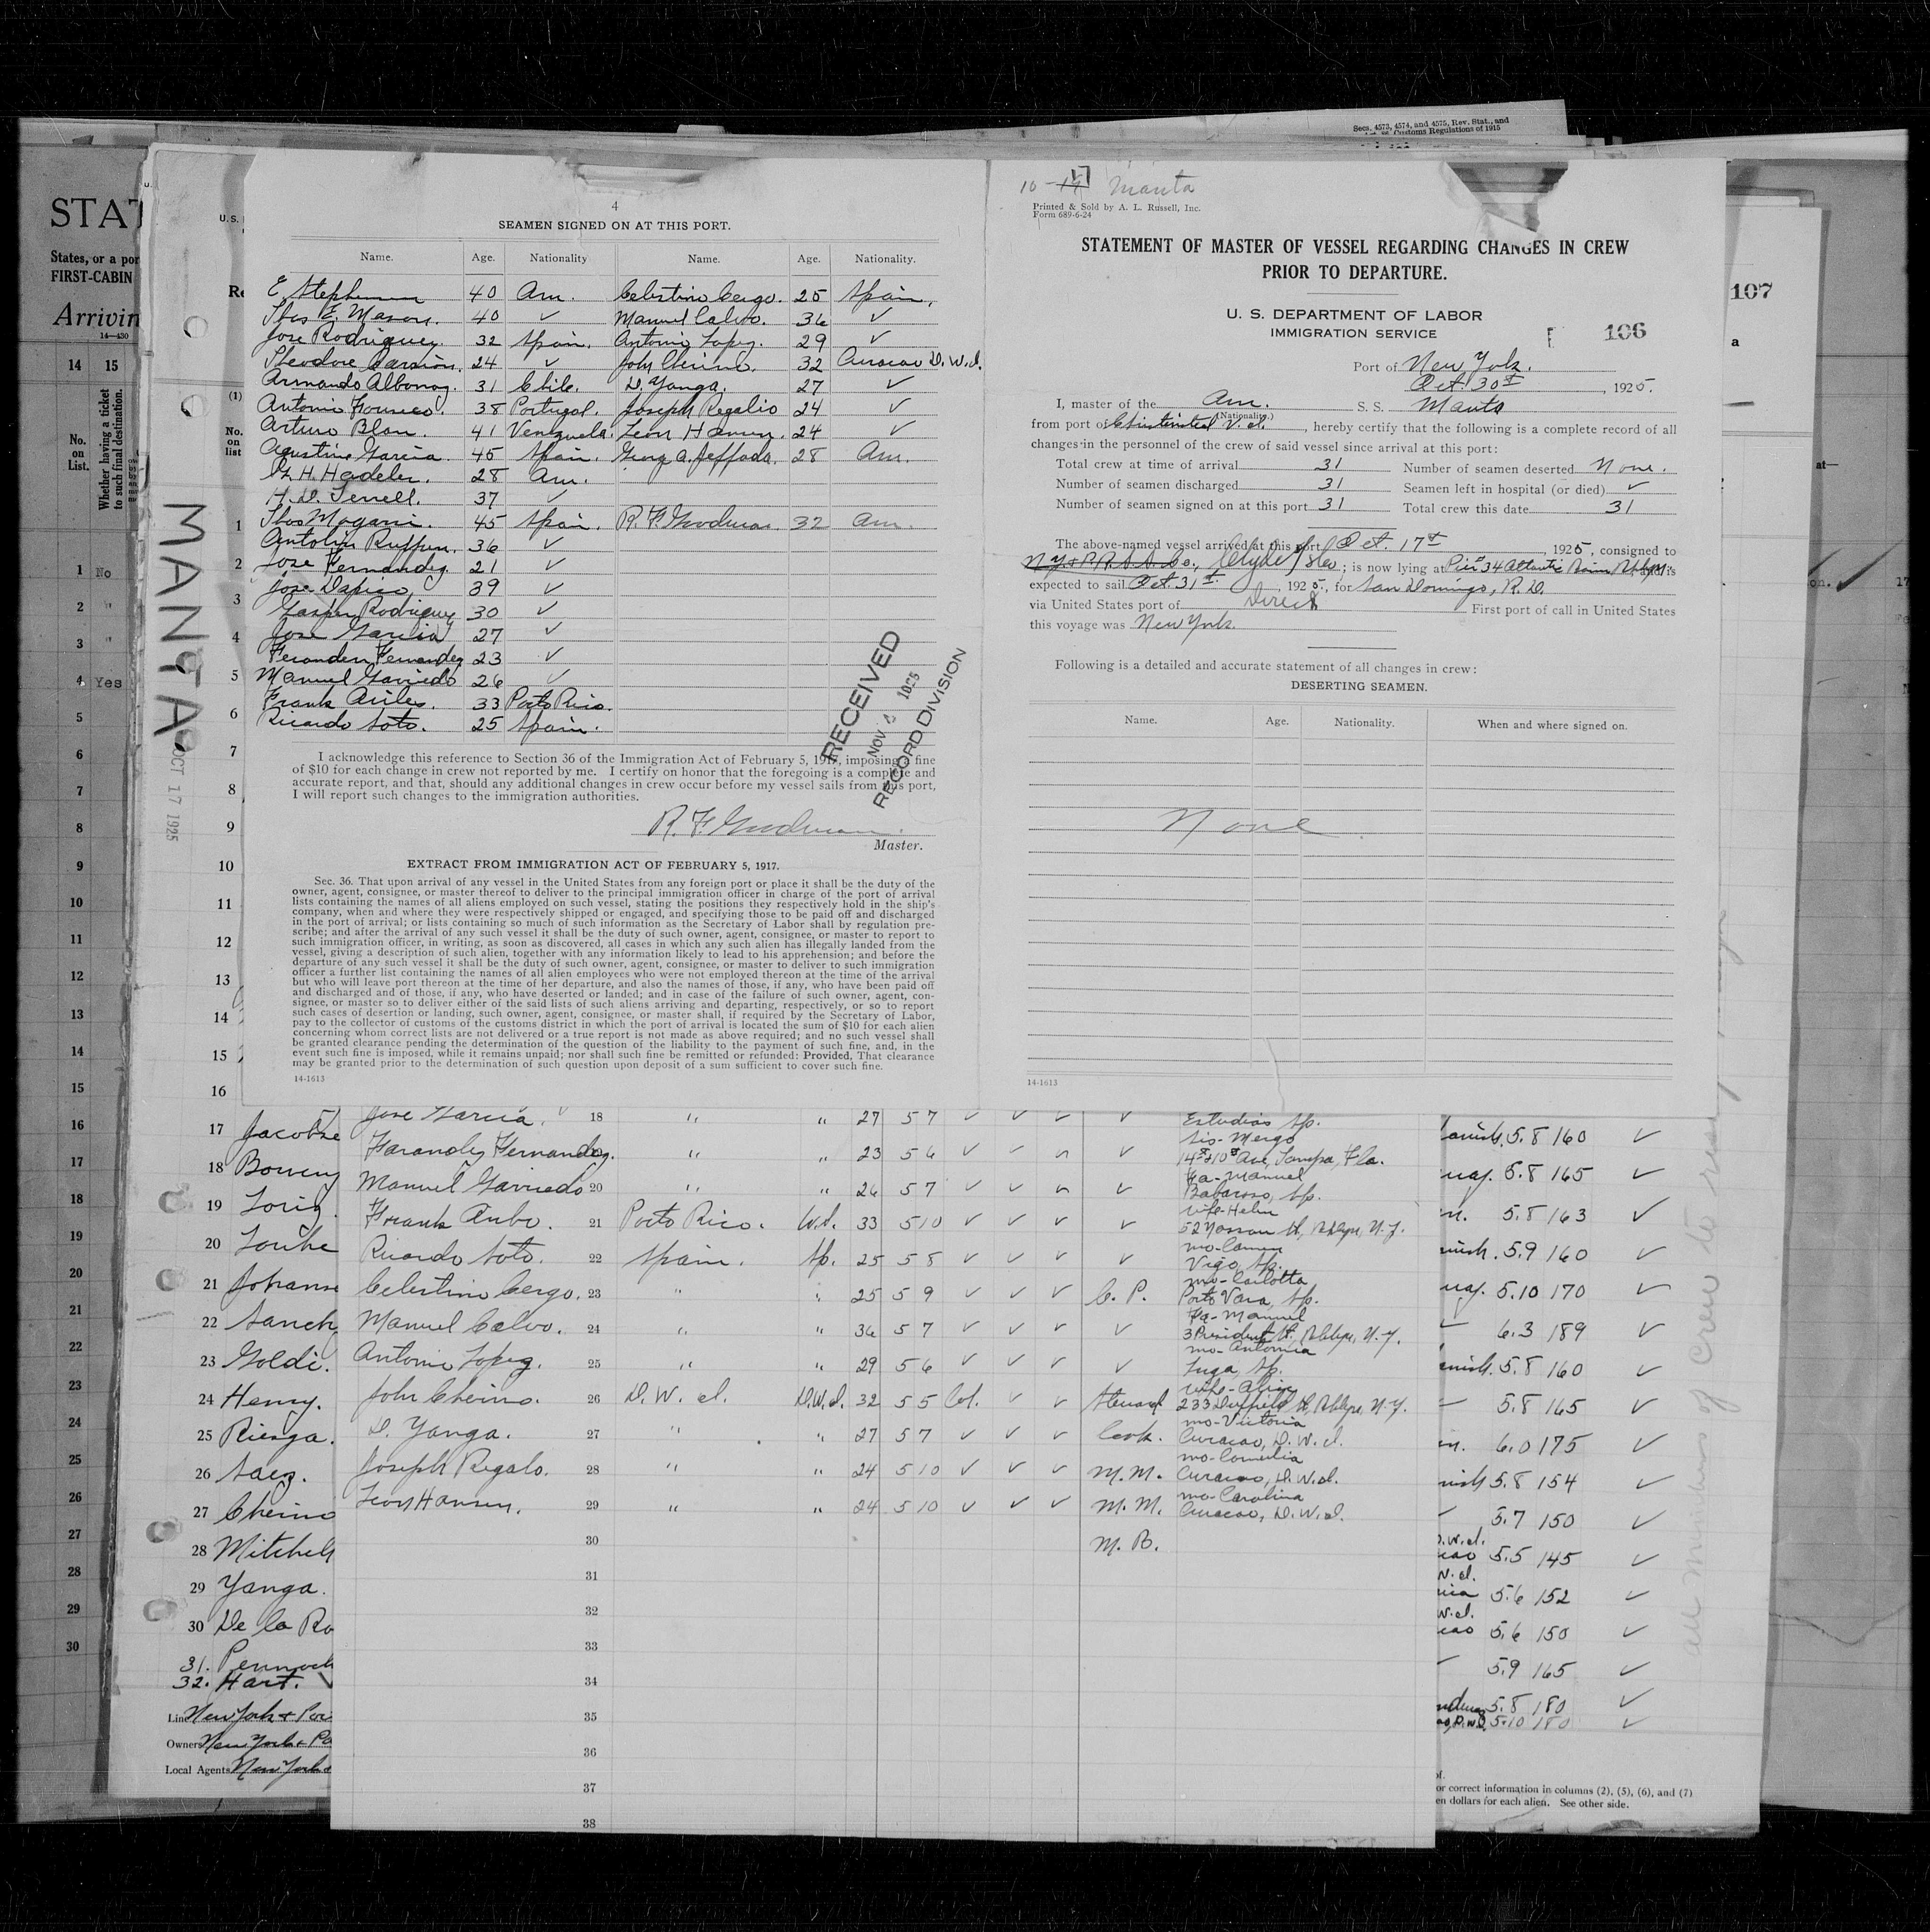 Secs. 4573, 4574, and 4575, Rev. Stat., and
Customs Regulations of 1915
STAT
States, or a por
FIRST-CABIN
Arrivin
14—430
14 15
No.
on
List.
Whether having a ticket
to such final destination.
1 No
2 "
3 "
4 Yes
5
6
7
8
9
10
11
12
13
14
15
16
17
18
19
20
21
22
23
24
25
26
27
28
29
30
MANTA
OCT 17 1925
U.S.
Re
(1)
No.
on
list
1
2
3
4
5
6
7
8
9
10
11
12
13
14
15
16
4
SEAMEN SIGNED ON AT THIS PORT.
Name. Age. Nationality Name. Age. Nationality.
E. Stephenson 40 Am. Celestino Cergo. 25 Spain.
Thos E. Mason. 40 ✓ Manuel Calvo. 36 ✓
Jose Rodriguez. 32 Spain. Antonio Lopez. 29 ✓
Theodore 24 ✓ John Cheino. 32 Curacao D.W.I.
Armando 31 Chile. D. Yanga. 27 ✓
Antonio 38 Portugal. Joseph Regalio 24 ✓
Arturo Blan. 41 Venezuela. Leon Hansen. 24 ✓
Agustine Garcia. 45 Spain. Georg A. 28 Am.
G. H. Hadeler. 28 Am.
H. D. Terrell. 37 ✓
Thos 45 Spain. R. F. Goodman 32 Am.
Antolin 36 ✓
Jose Fernandez. 21 ✓
Jose Dapico 39 ✓
Gasper Rodriguez 30 ✓
Jose Garcia 27 ✓
Fernandez 23 ✓
Manuel Garriedo 26 ✓
Frank 33 Porto Rico.
Ricardo Soto. 25 Spain.
RECEIVED
NOV 1925
RECORD DIVISION
I acknowledge this reference to Section 36 of the Immigration Act of February 5, 1917, imposing a fine
of $10 for each change in crew not reported by me. I certify on honor that the foregoing is a complete and
accurate report, and that, should any additional changes in crew occur before my vessel sails from this port,
I will report such changes to the immigration authorities.
R. F. Goodman.
Master.
EXTRACT FROM IMMIGRATION ACT OF FEBRUARY 5, 1917.
Sec. 36. That upon arrival of any vessel in the United States from any foreign port or place it shall be the duty of the
owner, agent, consignee, or master thereof to deliver to the principal immigration officer in charge of the port of arrival
lists containing the names of all aliens employed on such vessel, stating the positions they respectively hold in the ship's
company, when and where they were respectively shipped or engaged, and specifying those to be paid off and discharged
in the port of arrival; or lists containing so much of such information as the Secretary of Labor shall by regulation pre-
scribe; and after the arrival of any such vessel it shall be the duty of such owner, agent, consignee, or master to report to
such immigration officer, in writing, as soon as discovered, all cases in which any such alien has illegally landed from the
vessel, giving a description of such alien, together with any information likely to lead to his apprehension; and before the
departure of any such vessel it shall be the duty of such owner, agent, consignee, or master to deliver to such immigration
officer a further list containing the names of all alien employees who were not employed thereon at the time of the arrival
but who will leave port thereon at the time of her departure, and also the names of those, if any, who have been paid off
and discharged and of those, if any, who have deserted or landed; and in case of the failure of such owner, agent, con-
signee, or master so to deliver either of the said lists of such aliens arriving and departing, respectively, or so to report
such cases of desertion or landing, such owner, agent, consignee, or master shall, if required by the Secretary of Labor,
pay to the collector of customs of the customs district in which the port of arrival is located the sum of $10 for each alien
concerning whom correct lists are not delivered or a true report is not made as above required; and no such vessel shall
be granted clearance pending the determination of the question of the liability to the payment of such fine, and, in the
event such fine is imposed, while it remains unpaid; nor shall such fine be remitted or refunded: Provided, That clearance
may be granted prior to the determination of such question upon deposit of a sum sufficient to cover such fine.
14-1613
10-17 Manta
Printed & Sold by A. L. Russell, Inc.
Form 689-6-24
STATEMENT OF MASTER OF VESSEL REGARDING CHANGES IN CREW
PRIOR TO DEPARTURE.
U. S. DEPARTMENT OF LABOR
IMMIGRATION SERVICE
106
Port of New York.
Oct. 30th, 1925.
I, master of the Am. S. S. Manta
(Nationality.)
from port of V. I., hereby certify that the following is a complete record of all
changes in the personnel of the crew of said vessel since arrival at this port:
Total crew at time of arrival 31 Number of seamen deserted None.
Number of seamen discharged 31 Seamen left in hospital (or died) ✓
Number of seamen signed on at this port 31 Total crew this date 31
The above-named vessel arrived at this port Oct. 17th, 1925, consigned to
N.Y. & P.R. S.S. Co., Clyde; is now lying at Pier 34 Atlantic Basin Bklyn.; and is
expected to sail Oct. 31st, 1925, for San Domingo, R. D.
via United States port of Direct First port of call in United States
this voyage was New York.
Following is a detailed and accurate statement of all changes in crew:
DESERTING SEAMEN.
Name. Age. Nationality. When and where signed on.
None
14-1613
107
a
at—
on. ✓ 17
17 Jacobse
18 Boweny
19
20
21 Johanse
22 Sanch
23 Goldi.
24 Henry.
25 Riesga.
26 Saez.
27 Cheino
28 Mitchell
29 Yanga.
30 De la Ro
31. Pennock
32. Hart.
Line New York & Por
Owners New York & Po
Local Agents New York &
Jose Garcia. 18 " " 27 5 7 ✓ ✓ ✓ ✓ Sp.
Fernandez. " " 23 5 6 ✓ ✓ ✓ 14th & 10th Ave, Tampa, Fla.
Manuel Garriedo 20 " " 26 5 7 ✓ ✓ ✓ Fa-Manuel Sp.
Frank 21 Porto Rico. W.I. 33 5 10 ✓ ✓ ✓ ✓ Wife-Helen 52 Nassau St, Bklyn, N.Y.
Ricardo Soto. 22 Spain. Sp. 25 5 8 ✓ ✓ ✓ ✓ mo-Carmen Vigo, Sp.
Celestino Cergo. 23 " " 25 5 9 ✓ ✓ ✓ C. P. mo-Carlotta Porto Vara, Sp.
Manuel Calvo. 24 " " 36 5 7 ✓ ✓ ✓ ✓ Fa-Manuel 3 President St, Bklyn, N.Y.
Antonio Lopez. 25 " " 29 5 6 ✓ ✓ ✓ ✓ mo-Antonia Sp.
John Cheino. 26 D. W. I. D.W.I. 32 5 5 Col. ✓ ✓ Steward wife-Alice 233 Duffield St, Bklyn, N.Y.
D. Yanga. 27 " " 27 5 7 ✓ ✓ ✓ Cook. mo-Victoria Curacao, D. W. I.
Joseph Regalo. 28 " " 24 5 10 ✓ ✓ ✓ M. M. mo-Cornelia Curacao, D.W.I.
Leon Hansen. 29 " " 24 5 10 ✓ ✓ ✓ M. M. mo-Carolina Curacao, D.W.I.
30 M. B.
31
32
33
34
35
36
37
38
5.8 160 ✓
5.8 165 ✓
5.8 163 ✓
5.9 160 ✓
5.10 170 ✓
6.3 189 ✓
5.8 160 ✓
5.8 165 ✓
6.0 175 ✓
5.8 154 ✓
5.7 150 ✓
5.5 145 ✓
5.6 152 ✓
5.6 150 ✓
5.9 165 ✓
5.8 180 ✓
5.10 180 ✓
All members of Crew to
of.
or correct information in columns (2), (5), (6), and (7)
en dollars for each alien. See other side.